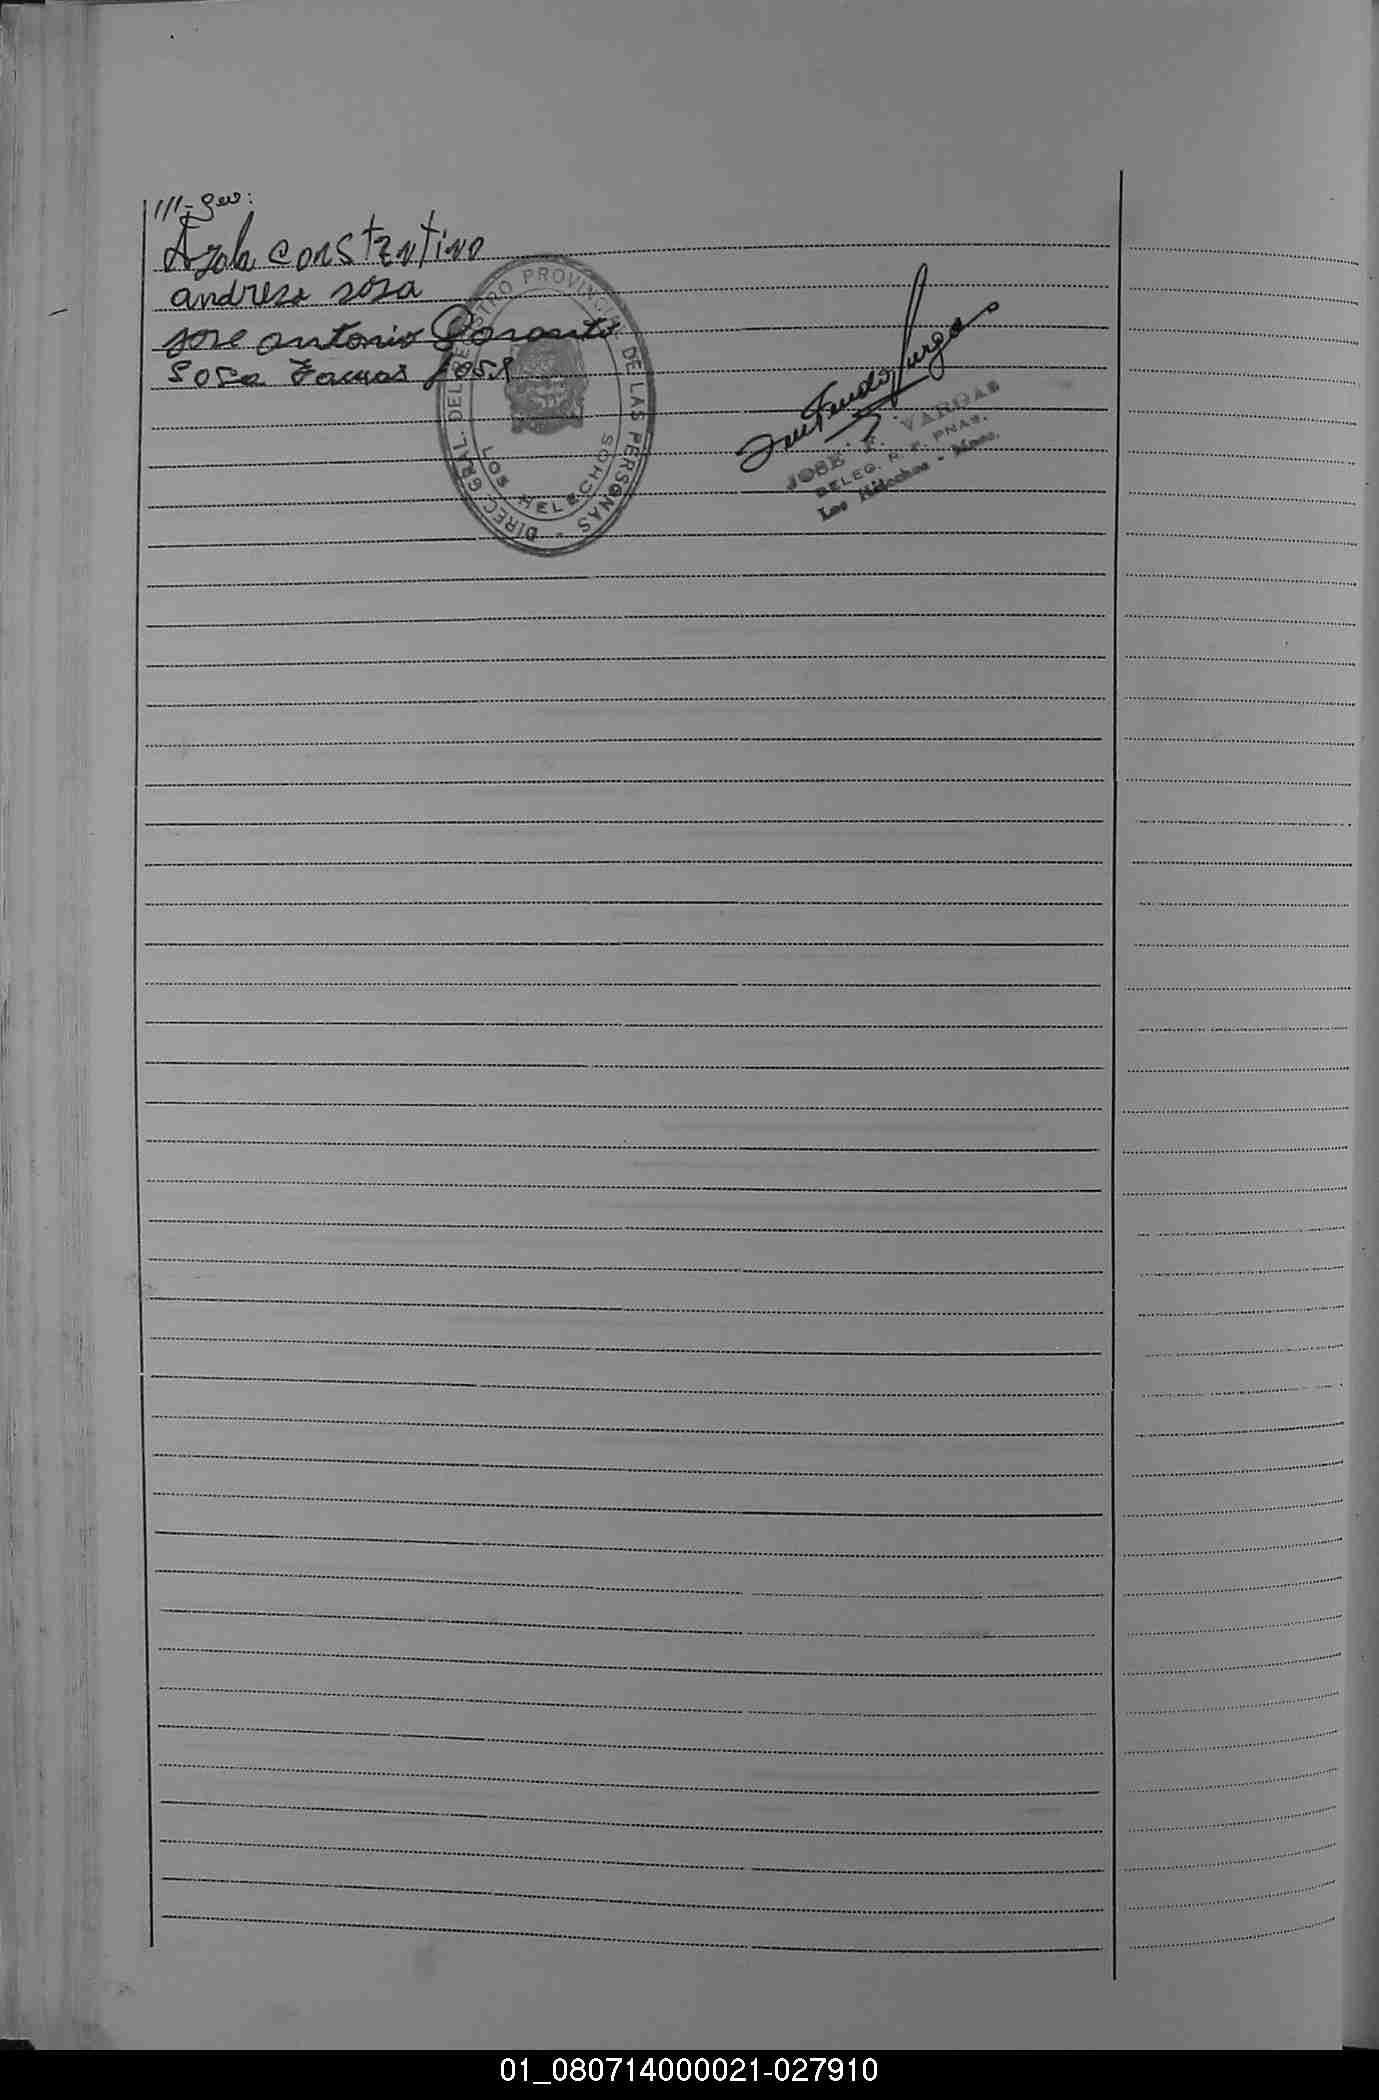 Azola constantino
andresa sosa
jose antonio
sosa jose
DIREC. GRAL. DEL REGISTRO PROVINCIAL DE LAS PERSONAS -
LOS HELECHOS
JOSE F. VARGAS
DELEG. R. P. PNAS.
Los Helechos - Mnes.
01_080714000021-027910